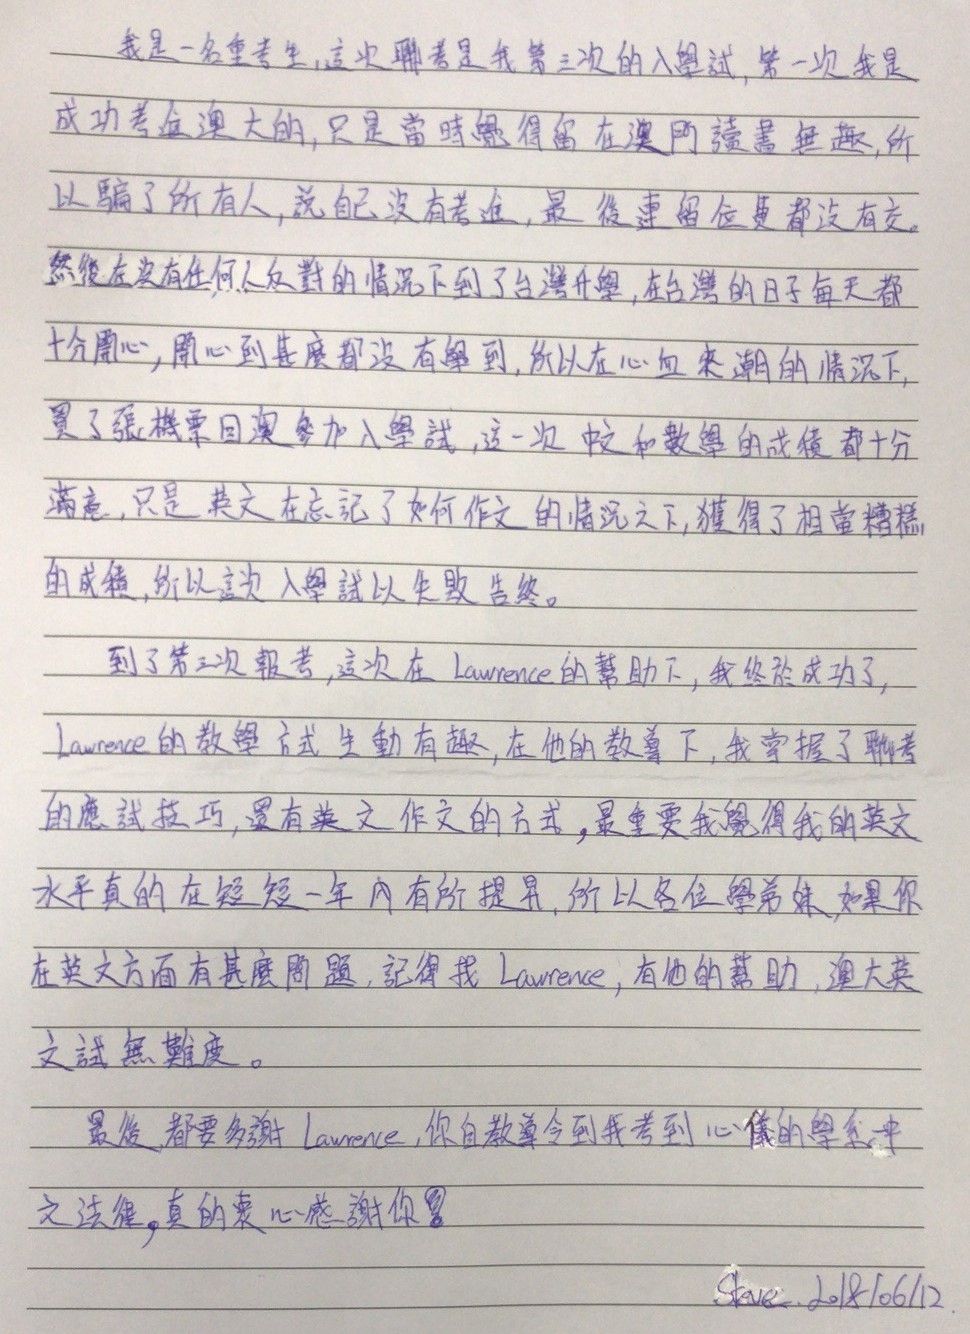 我是一名重考生,這次聯考是我第三次的入學試,第一次我是
成功考進澳大的,只是當時覺得留在澳門讀書無趣,所
以騙了所有人,說自己沒有考進,最後連留位費都沒有交。
然後在沒有任何人反對的情況下到了台灣升學,在台灣的日子每天都
十分開心,開心到甚麼都沒有學到,所以在心血來潮的情況下,
買了張機票回澳參加入學試,這一次中文和數學的成績都十分
滿意,只是英文在忘記了如何作文的情況之下,獲得了相當糟糕
的成績,所以這次入學試以失敗告終。
到了第三次報考,這次在Lawrence的幫助下,我終於成功了,
Lawrence的教學方式生動有趣,在他的教導下,我掌握了聯考
的應試技巧,還有英文作文的方式,最重要我覺得我的英文
水平真的在短短一年內有所提昇,所以各位學弟妹,如果你
在英文方面有甚麼問題,記得找Lawrence,有他的幫助,澳大英
文試無難度。
最後,都要多謝Lawrence,你的教導令到我考到心儀的學系中
文法律,真的衷心感謝你!
Steve. 2018/06/12.